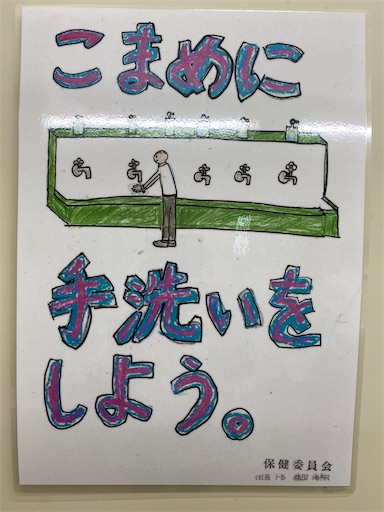 こまめに
手洗いを
しよう。
保健委員会